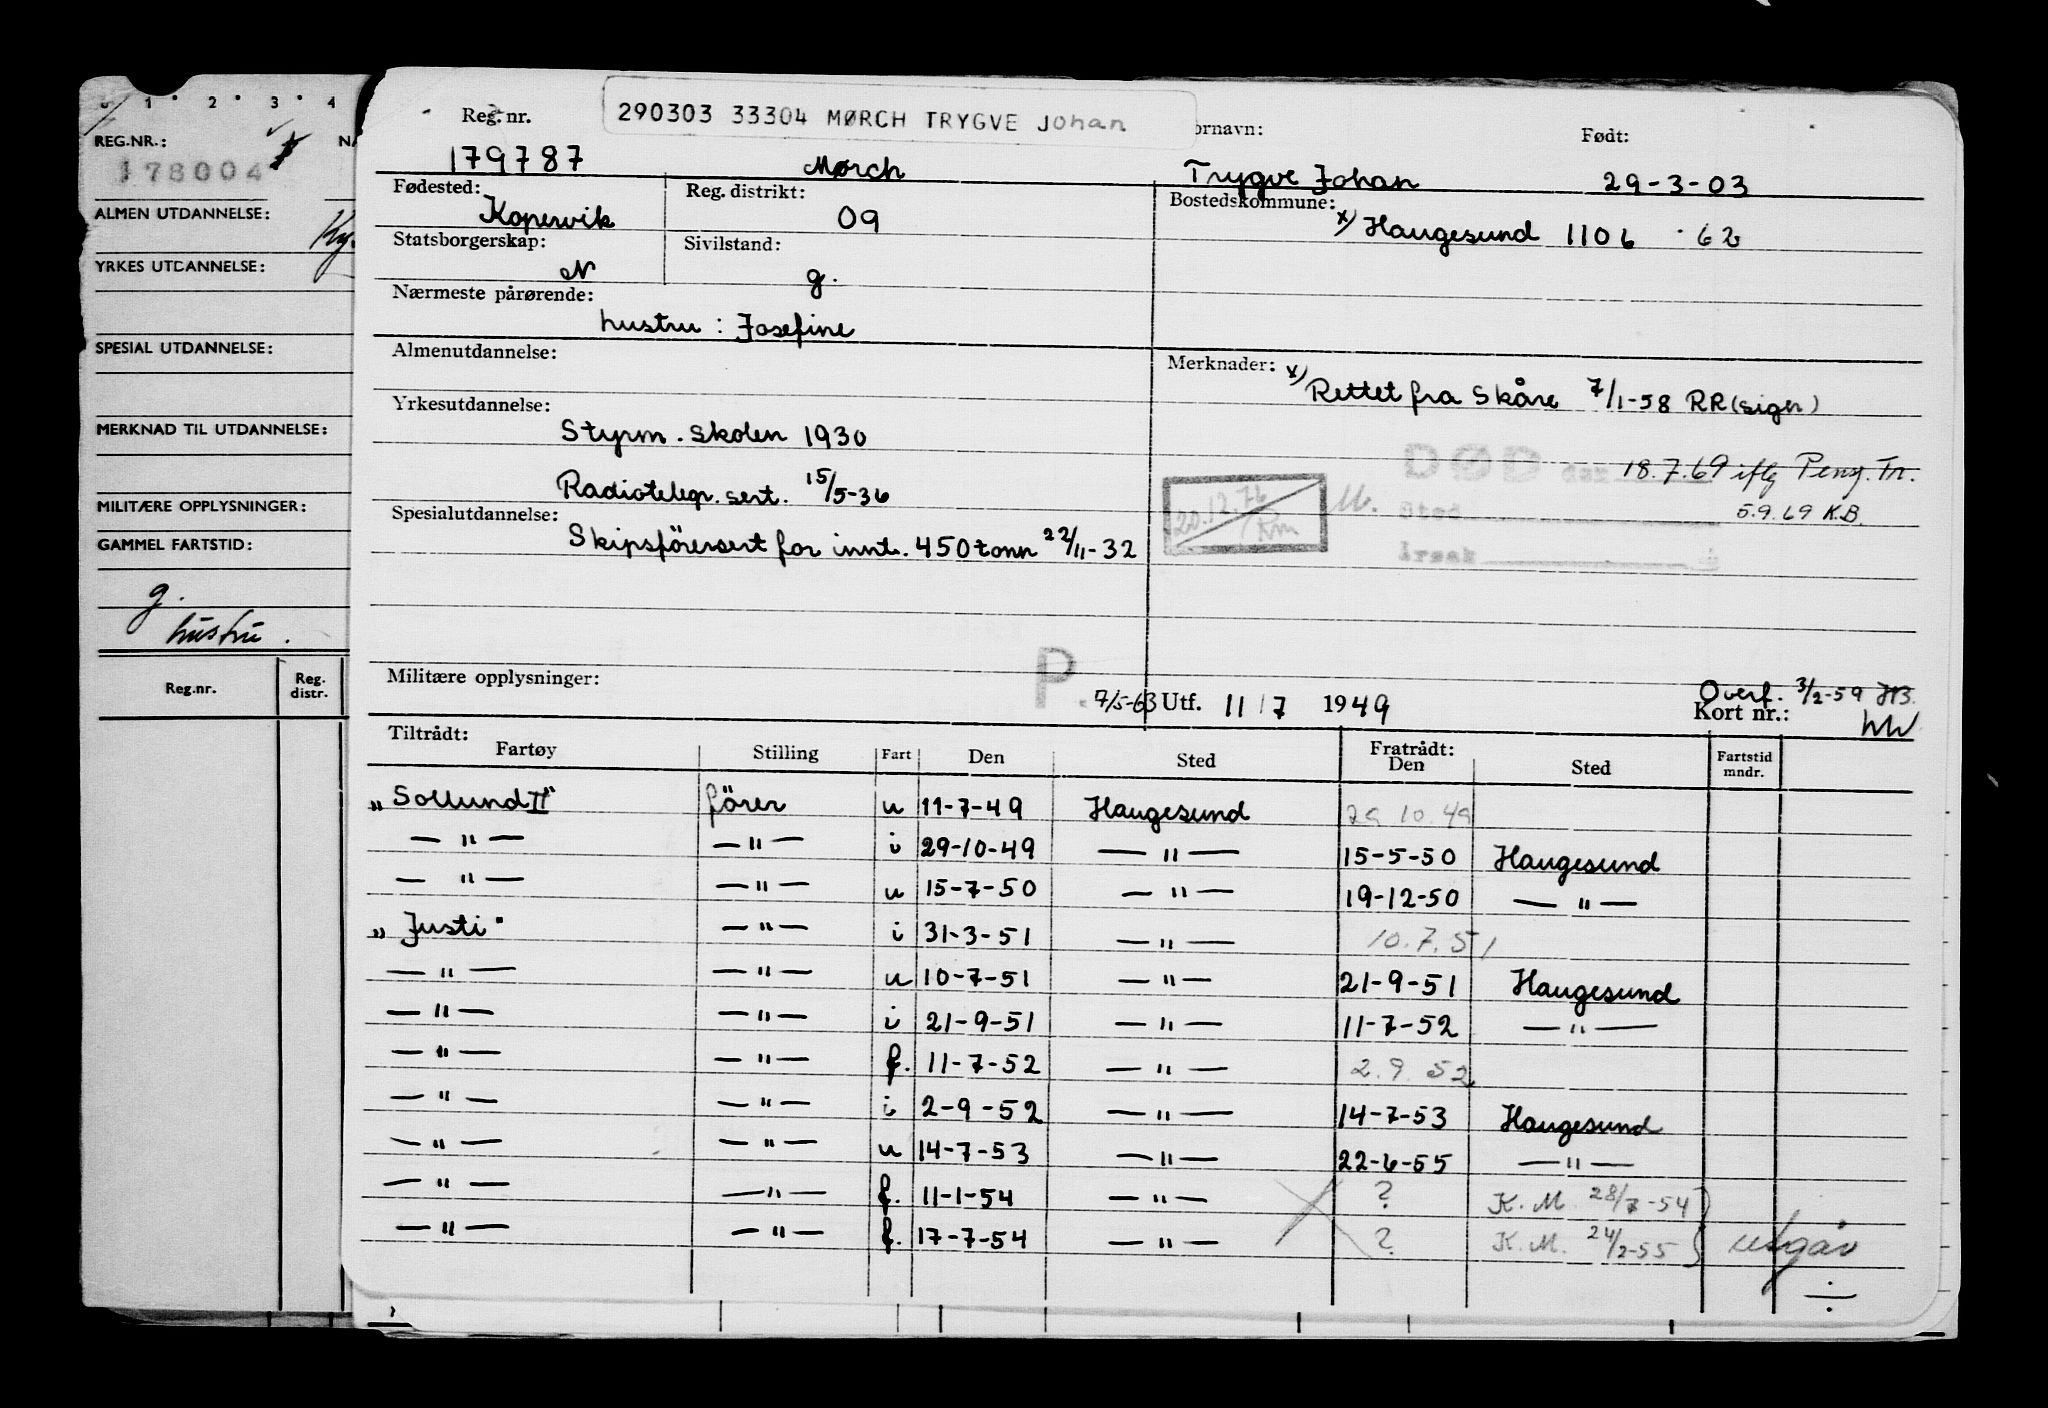 1 2 3 4
REG.NR.:
178004
ALMEN UTDANNELSE:
YRKES UTDANNELSE:
SPESIAL UTDANNELSE:
MERKNAD TIL UTDANNELSE:
MILITÆRE OPPLYSNINGER:
GAMMEL FARTSTID:
g.
hustru.
Reg.nr. Reg. distr.
Reg. nr. 290303 33304 MØRCH TRYGVE Johan ornavn: Født:
179787 Mørch Trygve Johan 29-3-03
Fødested: Reg. distrikt: Bostedskommune:
Kopervik 09 x) Haugesund 1106 · 62
Statsborgerskap: Sivilstand:
N g.
Nærmeste pårørende:
hustru : Josefine
Almenutdannelse: Merknader:
x) Rettet fra Skåre 7/1-58 RR (sign)
Yrkesutdannelse:
Styrm. skolen 1930
DØD den 18.7.69 iflg Peng. Tr.
Radiotelegr. sert. 15/5-36
20.12.76 Km
Sted 5.9.69 K.B.
Spesialutdannelse:
Skipsförersert for innt. 450 tonn 22/11-32
Årsak
Militære opplysninger: P. 7/5-63 Utf. 11/7 1949 Overf. 3/2-59
Kort nr.:
Tiltrådt: Fratrådt:
Fartøy Stilling Fart Den Sted Den Sted Fartstid mndr.
„Sollund II" förer u 11-7-49 Haugesund 29 10.49
— " — — " — i 29-10-49 — " — 15-5-50 Haugesund
— " — — " — u 15-7-50 — " — 19-12-50 — " —
„Justi" — " — i 31-3-51 — " — 10.7.51
— " — — " — u 10-7-51 — " — 21-9-51 Haugesund
— " — — " — i 21-9-51 — " — 11-7-52 — " —
— " — — " — f. 11-7-52 — " — 2.9.52
— " — — " — i 2-9-52 — " — 14-7-53 Haugesund
— " — — " — u 14-7-53 — " — 22-6-55 — " —
— " — — " — f. 11-1-54 — " — ? K.M. 28/7-54
— " — — " — f. 17-7-54 — " — ? K.M. 24/2-55 utgår